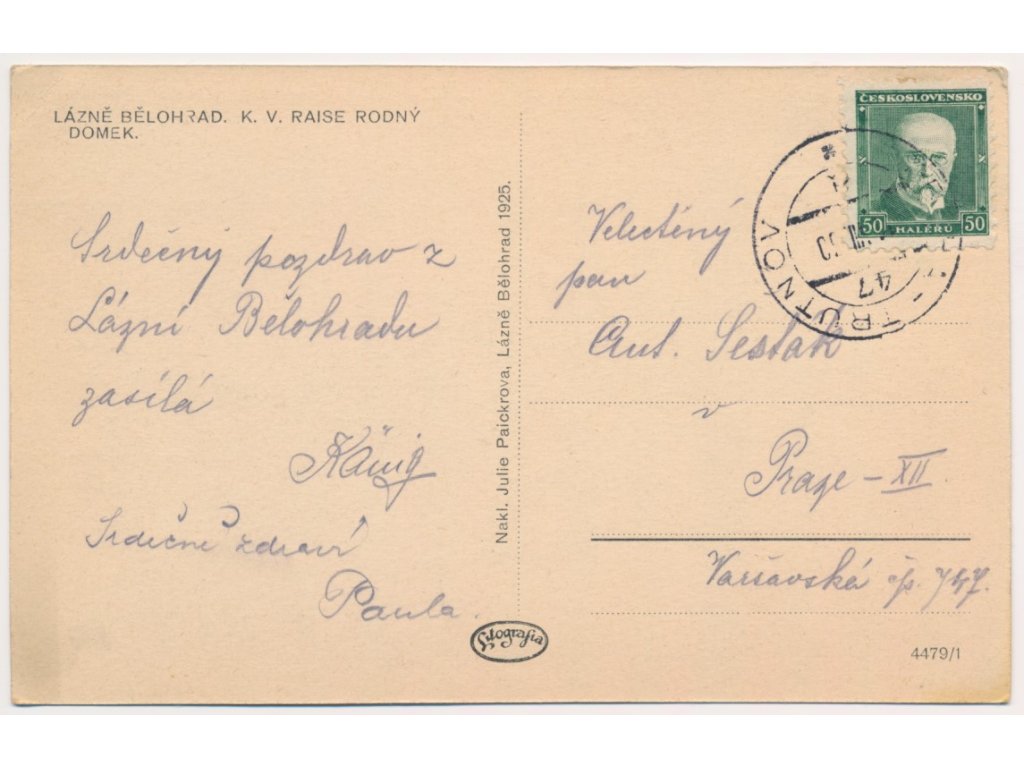 LÁZNĚ BĚLOHRAD. K. V. RAISE RODNÝ
DOMEK.
Srdečný pozdrav z
Lázní Bělohradu
zasílá
König
Srdečně zdraví
Paula.
Nakl. Julie Paickrova, Lázně Bělohrad 1925.
Litografia
ČESKOSLOVENSKO
50 50
HALÉŘŮ
TRUTNOV
47
Velectěný
pan
Ant. Šesták
v
Praze - XII.
Varšavská čp.
4479/1